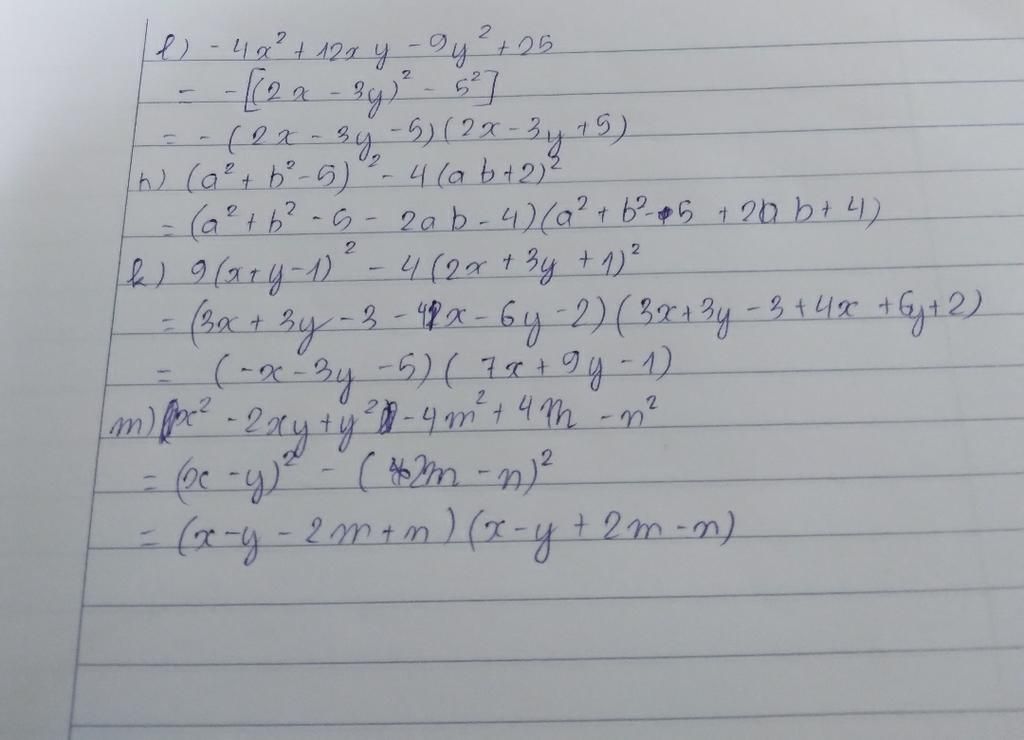 l) -4x² + 12xy - 9y² + 25
= -[(2x - 3y)² - 5²]
= -(2x - 3y - 5)(2x - 3y + 5)
h) (a² + b² - 5)² - 4(ab + 2)²
= (a² + b² - 5 - 2ab - 4)(a² + b² - 5 + 2ab + 4)
k) 9(x + y - 1)² - 4(2x + 3y + 1)²
= (3x + 3y - 3 - 4x - 6y - 2)(3x + 3y - 3 + 4x + 6y + 2)
= (-x - 3y - 5)(7x + 9y - 1)
m) x² - 2xy + y² - 4m² + 4m - n²
= (x - y)² - (2m - n)²
= (x - y - 2m + n)(x - y + 2m - n)